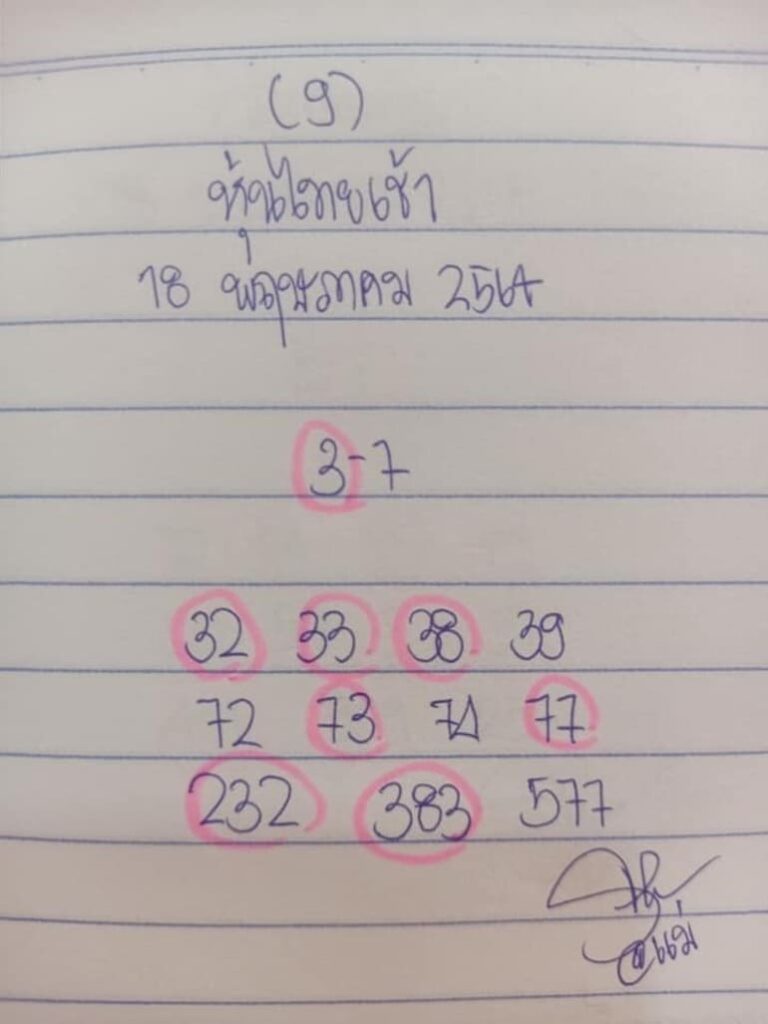 (9)
หุ้นไทยเช้า
18 พฤษภาคม 2564
3-7
32 33 38 39
72 73 74 77
232 383 577